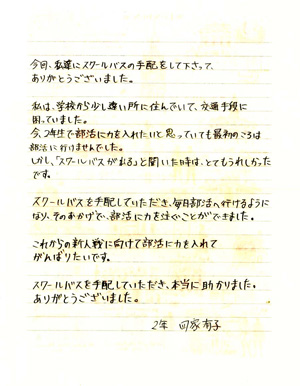 今回、私達にスクールバスの手配をして下さって、
ありがとうございました。
私は、学校から少し遠い所に住んでいて、交通手段に
困っていました。
今、2年生で部活に力を入れたいと思っていても最初のころは
部活に行けませんでした。
しかし、「スクールバスが出る」と聞いた時は、とてもうれしかった
です。
スクールバスを手配していただき、毎日部活へ行けるように
なり、そのおかげで、部活に力を注ぐことができました。
これからの新人戦に向けて部活に力を入れて
がんばりたいです。
スクールバスを手配していただき、本当に助かりました。
ありがとうございました。
2年 家有子